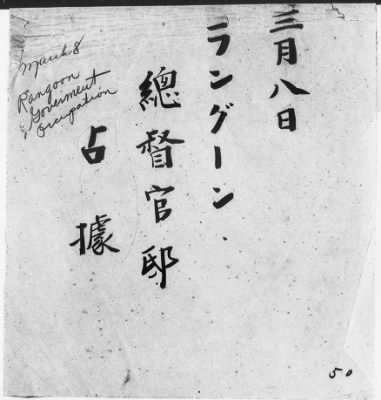 三月八日
ラングーン
總督官邸
占據
March 8
Rangoon
Goverment
Occupation
50